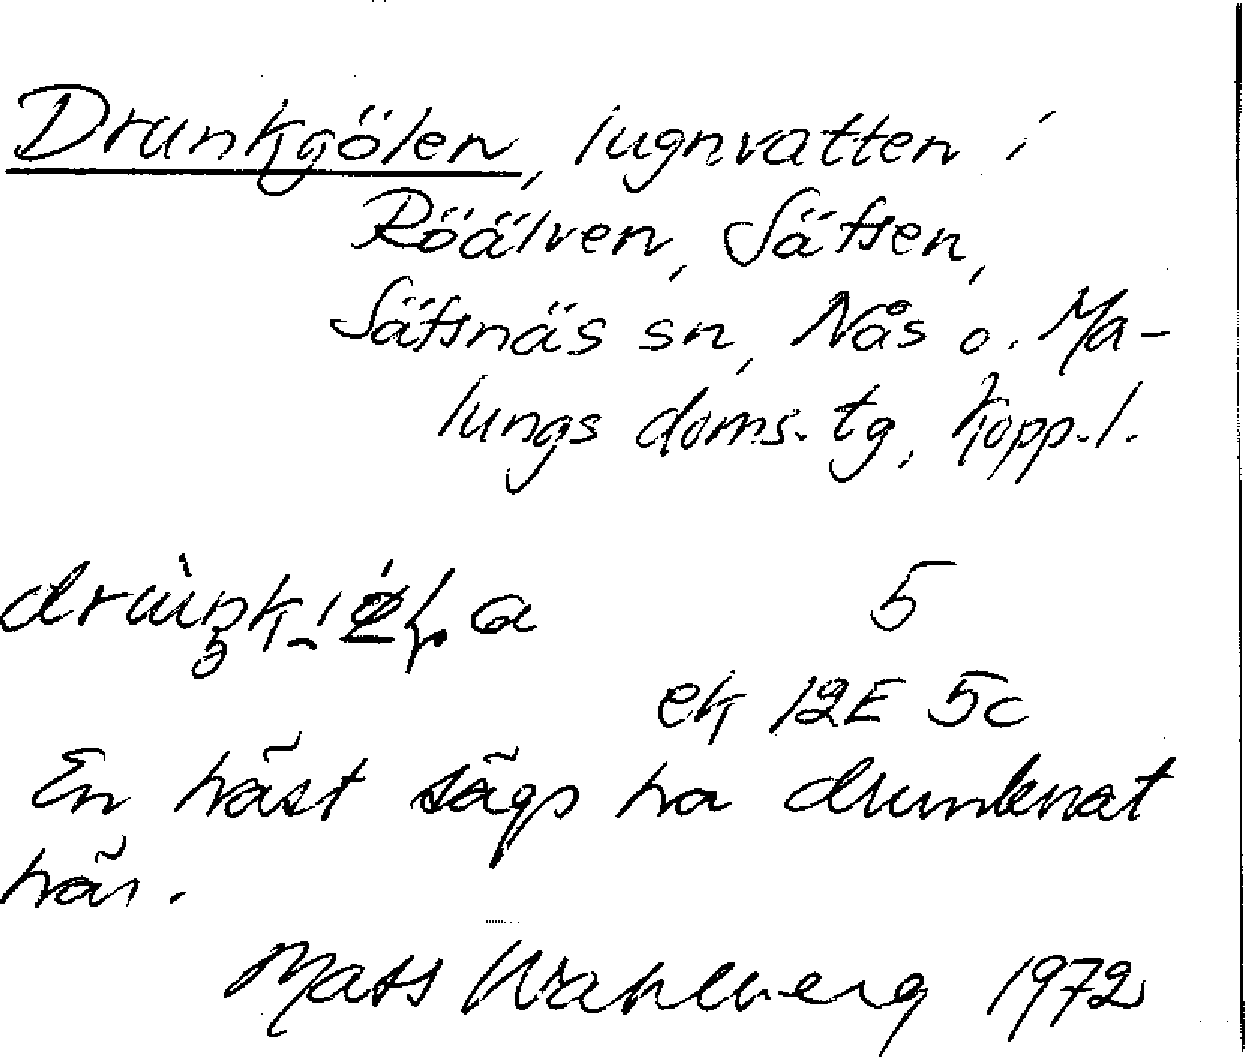 Drunkgölen, lugnvatten i
Röälven, Sätsen,
Sätsnäs sn, Nås o. Ma-
lungs doms. tg, Kopp.l.
5
ek 12E 5c
En häst sägs ha drunknat
här.
Mats Wahlberg 1972